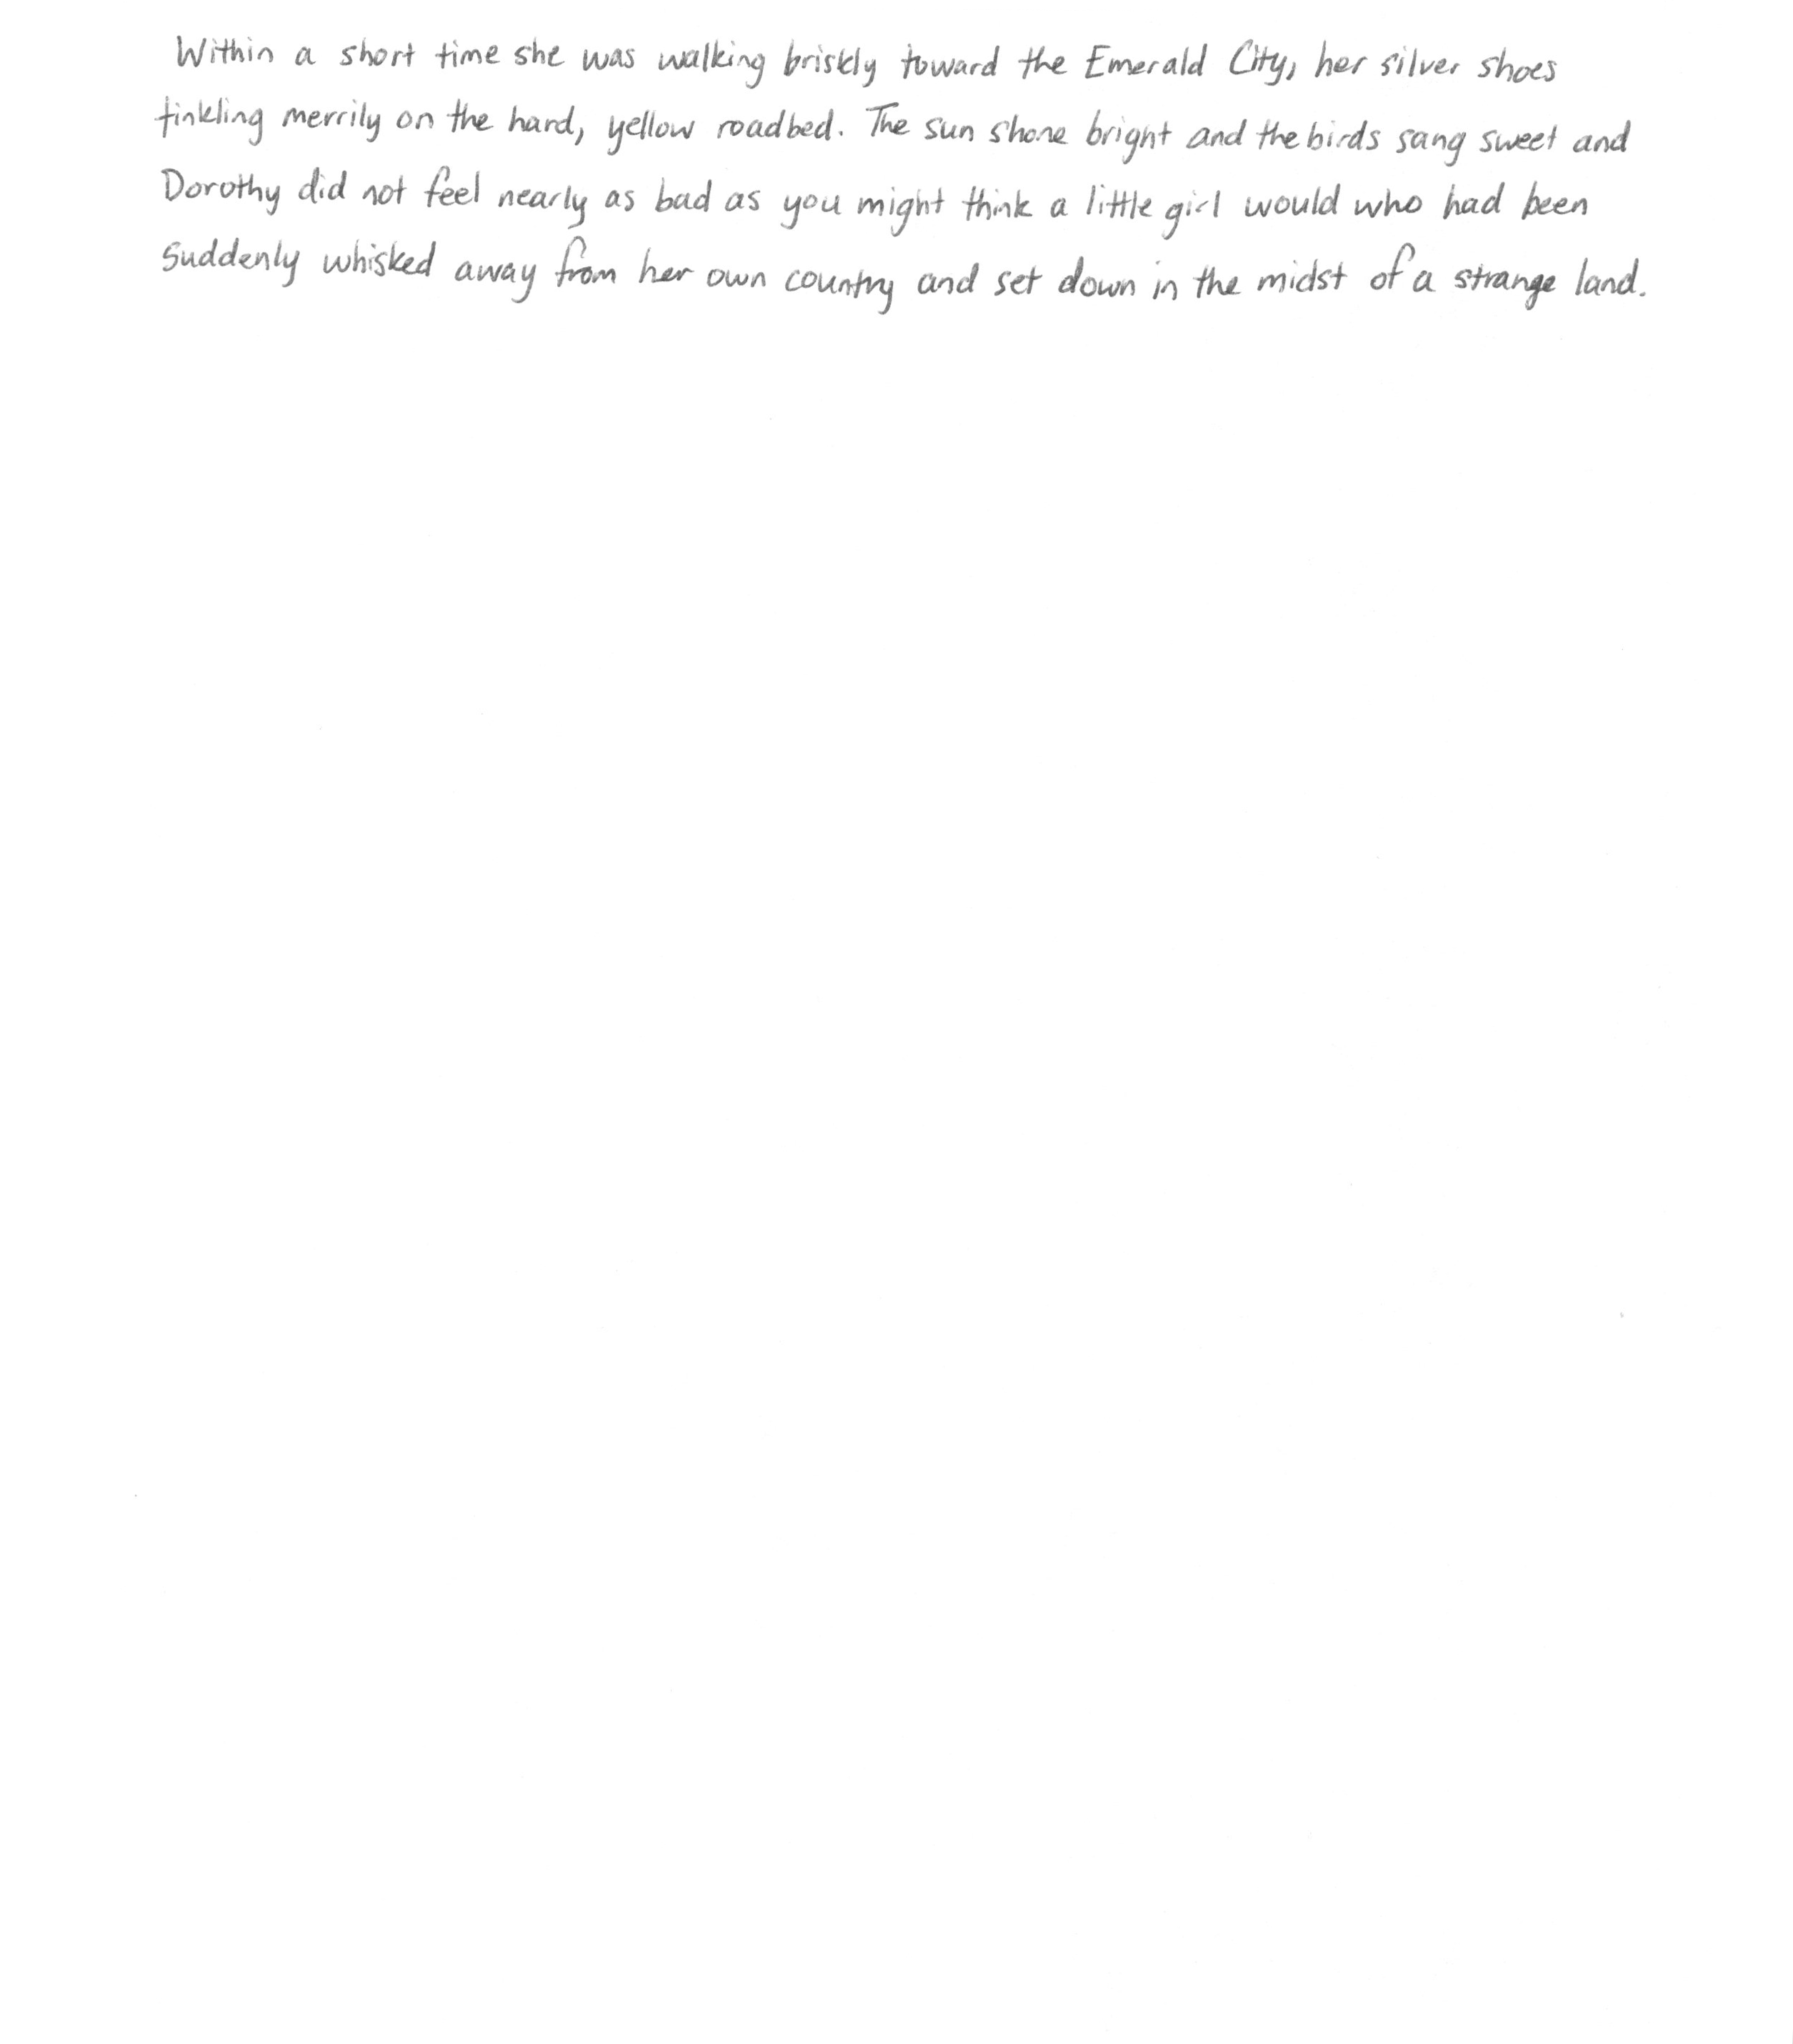 Within a short time she was walking briskly toward the Emerald City, her silver shoes
tinkling merrily on the hard, yellow roadbed. The sun shone bright and the birds sang sweet and
Dorothy did not feel nearly as bad as you might think a little girl would who had been
suddenly whisked away from her own country and set down in the midst of a strange land.